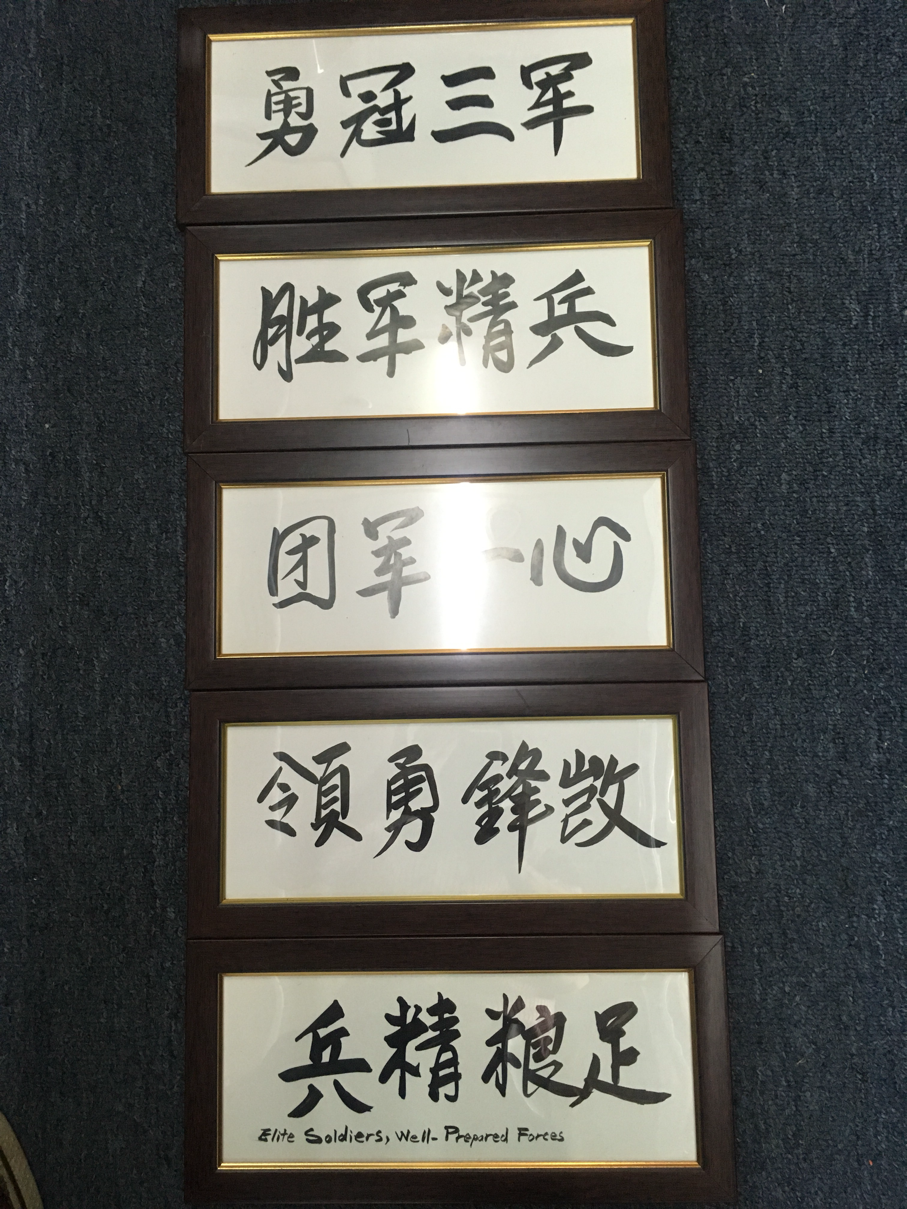 勇冠三军
胜军精兵
团军一心
領勇鋒敳
兵精粮足
Elite Soldiers, Well-Prepared Forces